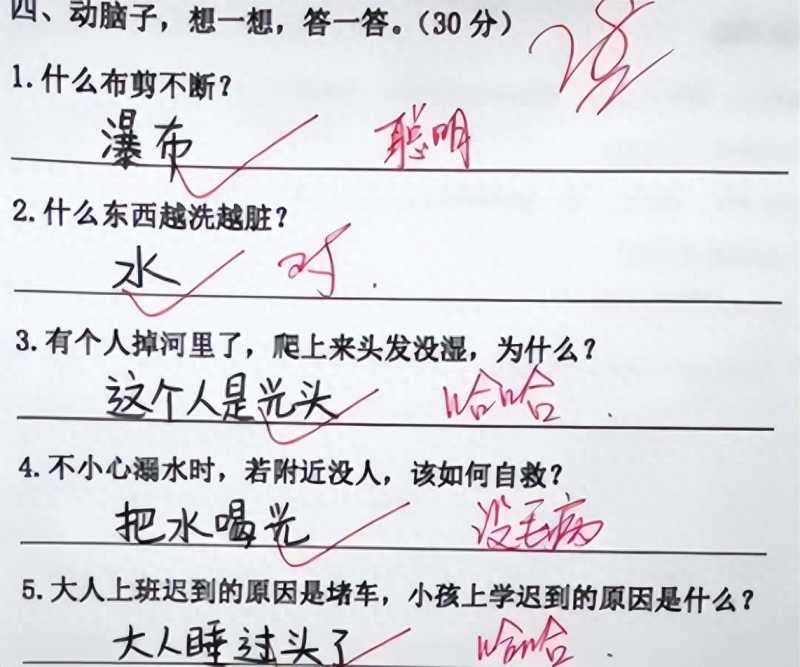 四、动脑子，想一想，答一答。（30分）
1.什么布剪不断？
瀑布 聪明
2.什么东西越洗越脏？
水 对.
3.有个人掉河里了，爬上来头发没湿，为什么？
这个人是光头 哈哈
4.不小心溺水时，若附近没人，该如何自救？
把水喝光 没毛病
5.大人上班迟到的原因是堵车，小孩上学迟到的原因是什么？
大人睡过头了 哈哈